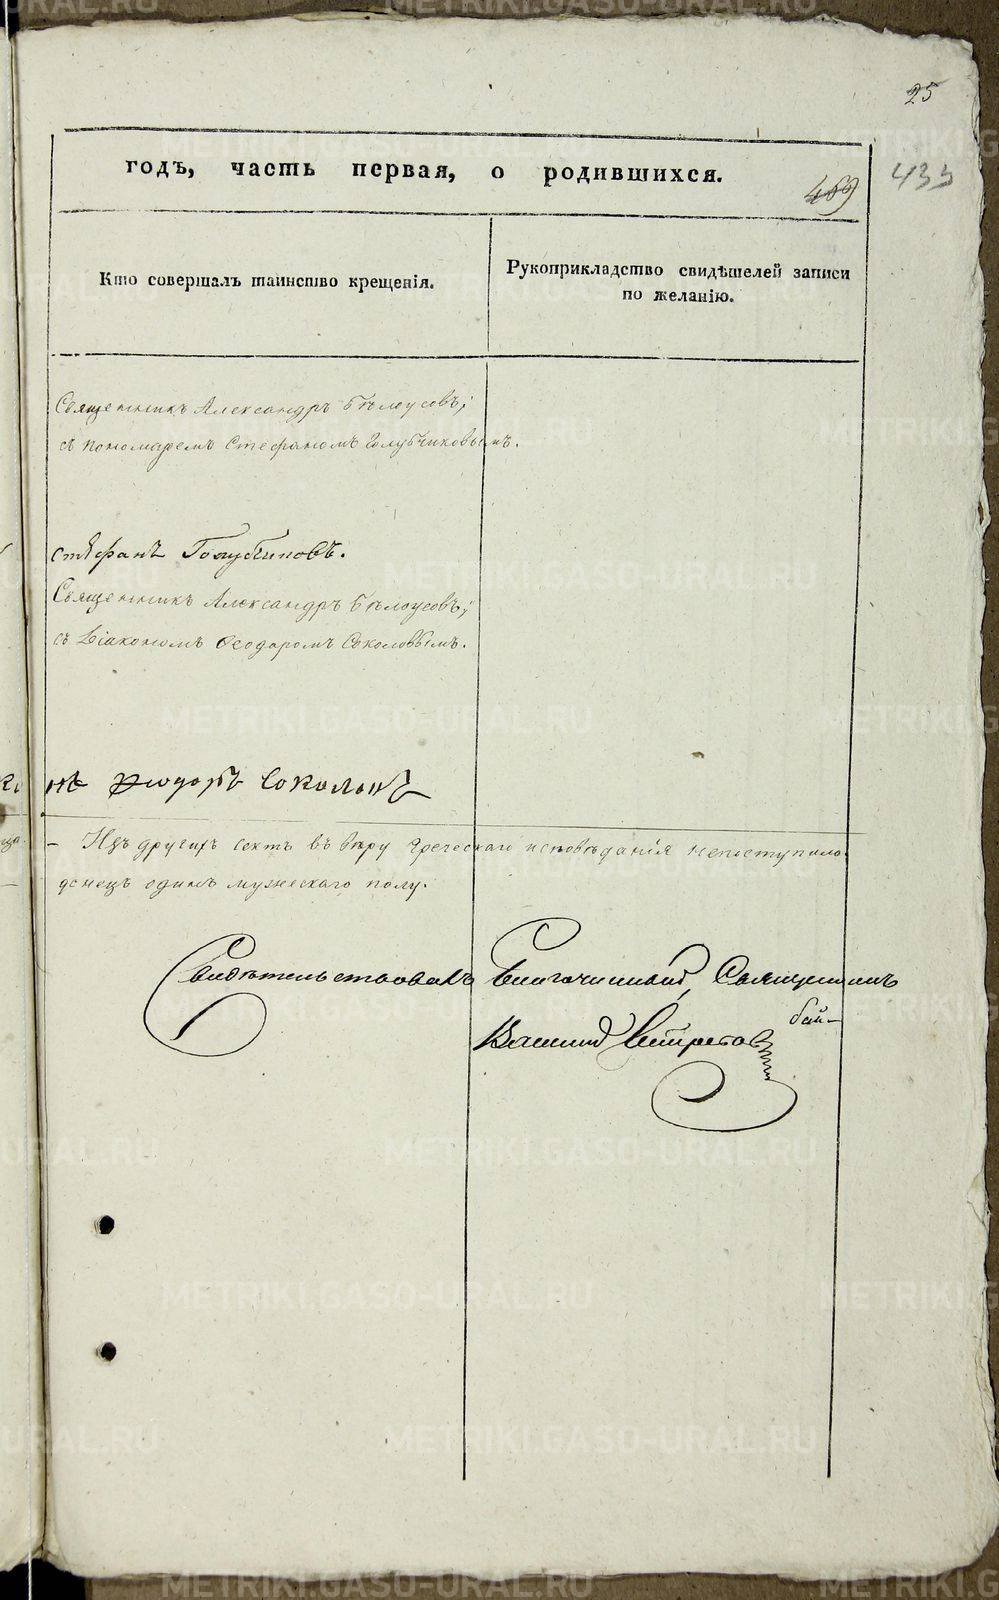 25
годъ, часть первая, о родившихся.
469
433
Кто совершалъ таинство крещенія.
Рукоприкладство свидѣтелей записи
по желанію.
Священникъ Александръ Бѣлоусовъ;
съ пономаремъ Стефаномъ Голубчиковымъ.
стефанъ Голубчиковъ.
Священникъ Александръ Бѣлоусовъ;
съ Діакономъ Ѳеодоромъ Соколовымъ.
нъ Ѳеодоръ Соколовъ
Изъ другихъ сектъ въ вѣру Греческаго исповѣданія непоступило
одинъ мужескаго полу.
Свидѣтельствовалъ Благочинный, Священникъ
Василий
METRIKI.GASO-URAL.RU